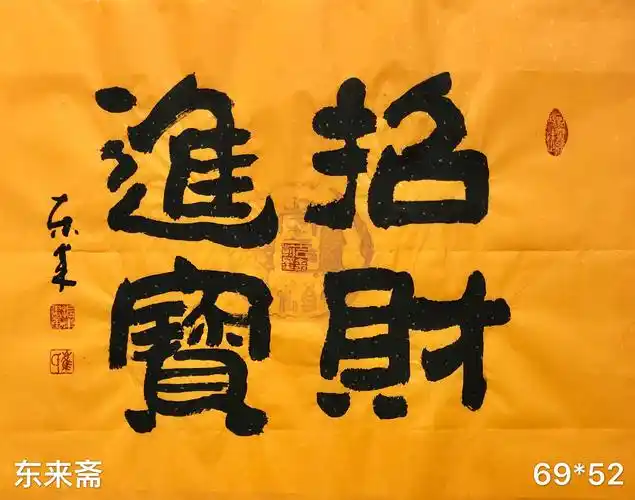 招財
進寶
东来
东来斋
69*52